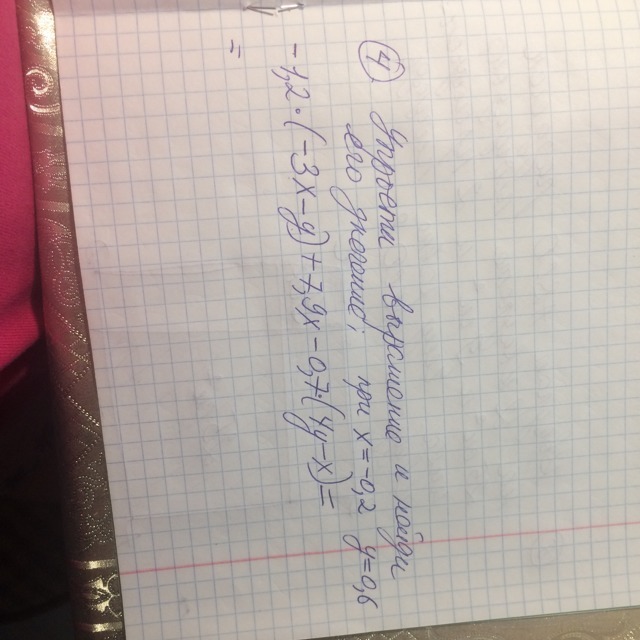 ④ Упрости выражение и найди
его значение; при x=-0,2 y=0,6
-1,2·(-3x-y)+7,9x-0,7·(4y-x)=
=